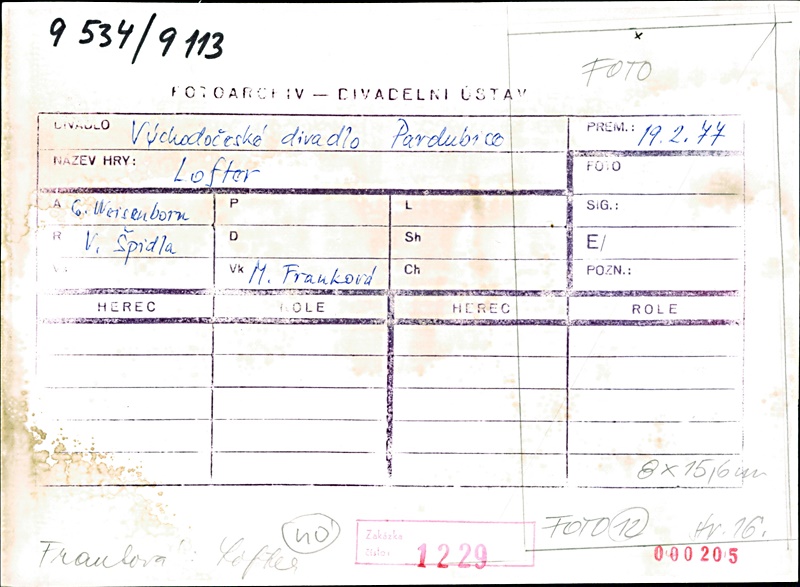 9 534/9 113
FOTO
FOTOARCHIV — DIVADELNÍ ÚSTAV
DIVADLO Východočeské divadlo Pardubice
PREM.: 19. 2. 77
NÁZEV HRY: Lofter
FOTO
A G. Weisenborn P L SIG.:
R V. Špidla D Sh E/
Vk M. Franková Ch POZN.:
HEREC ROLE HEREC ROLE
8 x 15,6 cm
FOTO 12 str. 16.
Zakázka
číslo 1229
000205
Franková: Lofter